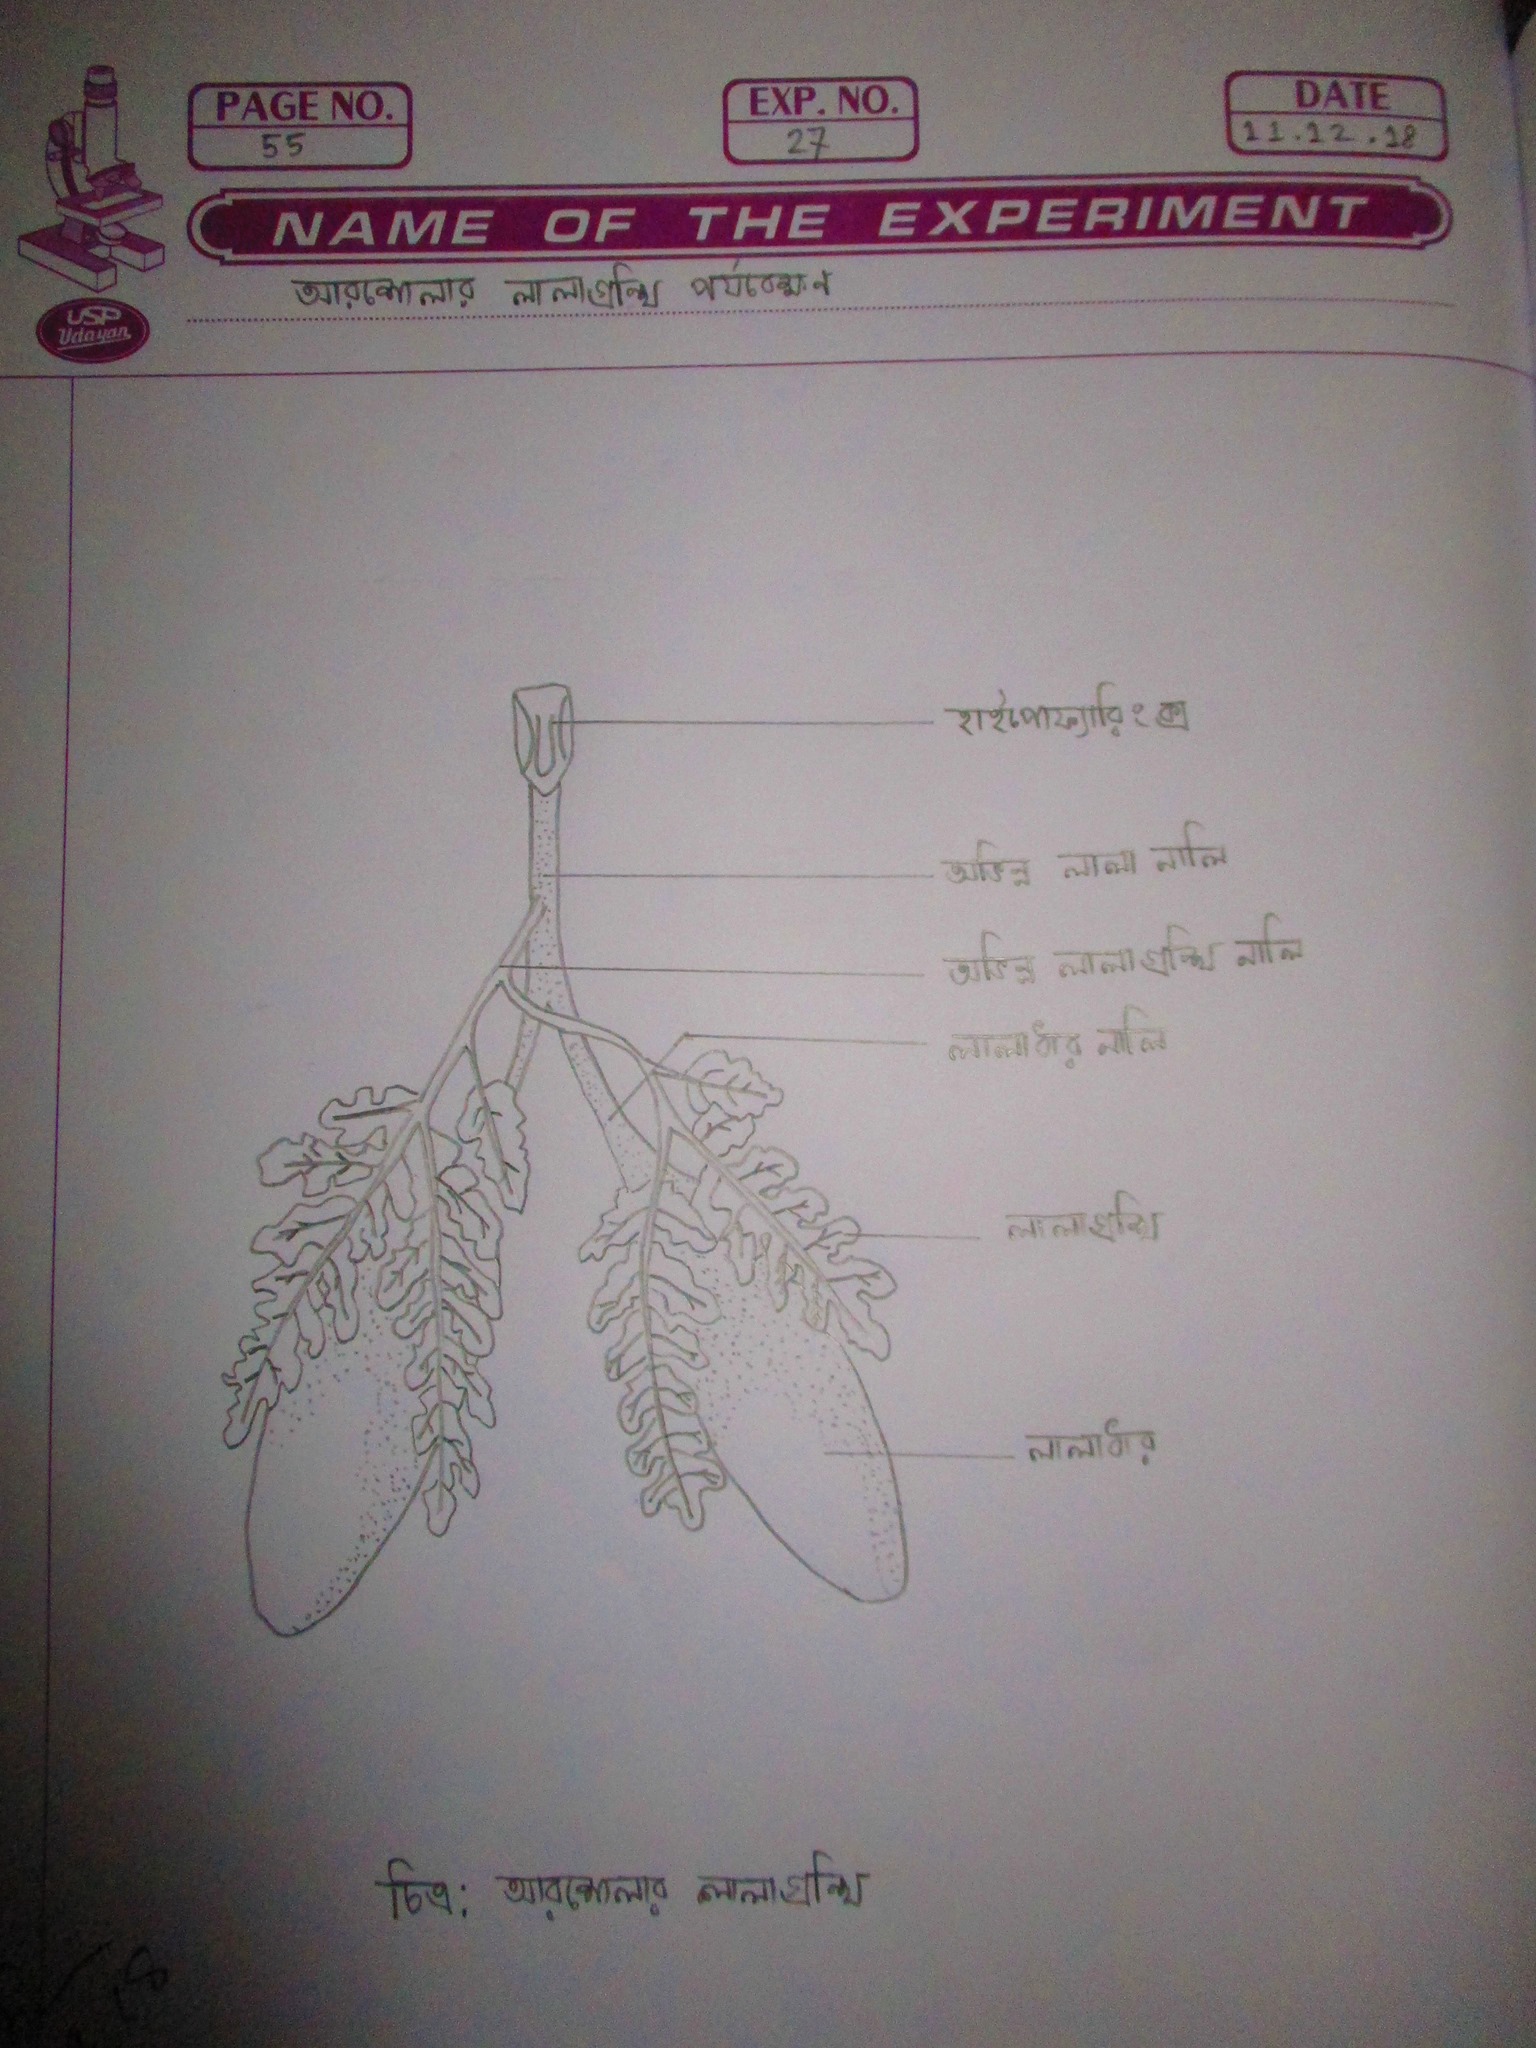 PAGE NO.
55
EXP. NO.
27
DATE
11.12.18
NAME OF THE EXPERIMENT
আরশোলার লালাগ্রন্থি পর্যবেক্ষণ
USP
Udayan
হাইপোফ্যারিংক্স
অভিন্ন লালা নালি
অভিন্ন লালাগ্রন্থি নালি
লালাধার নালি
লালাগ্রন্থি
লালাধার
চিত্র: আরশোলার লালাগ্রন্থি